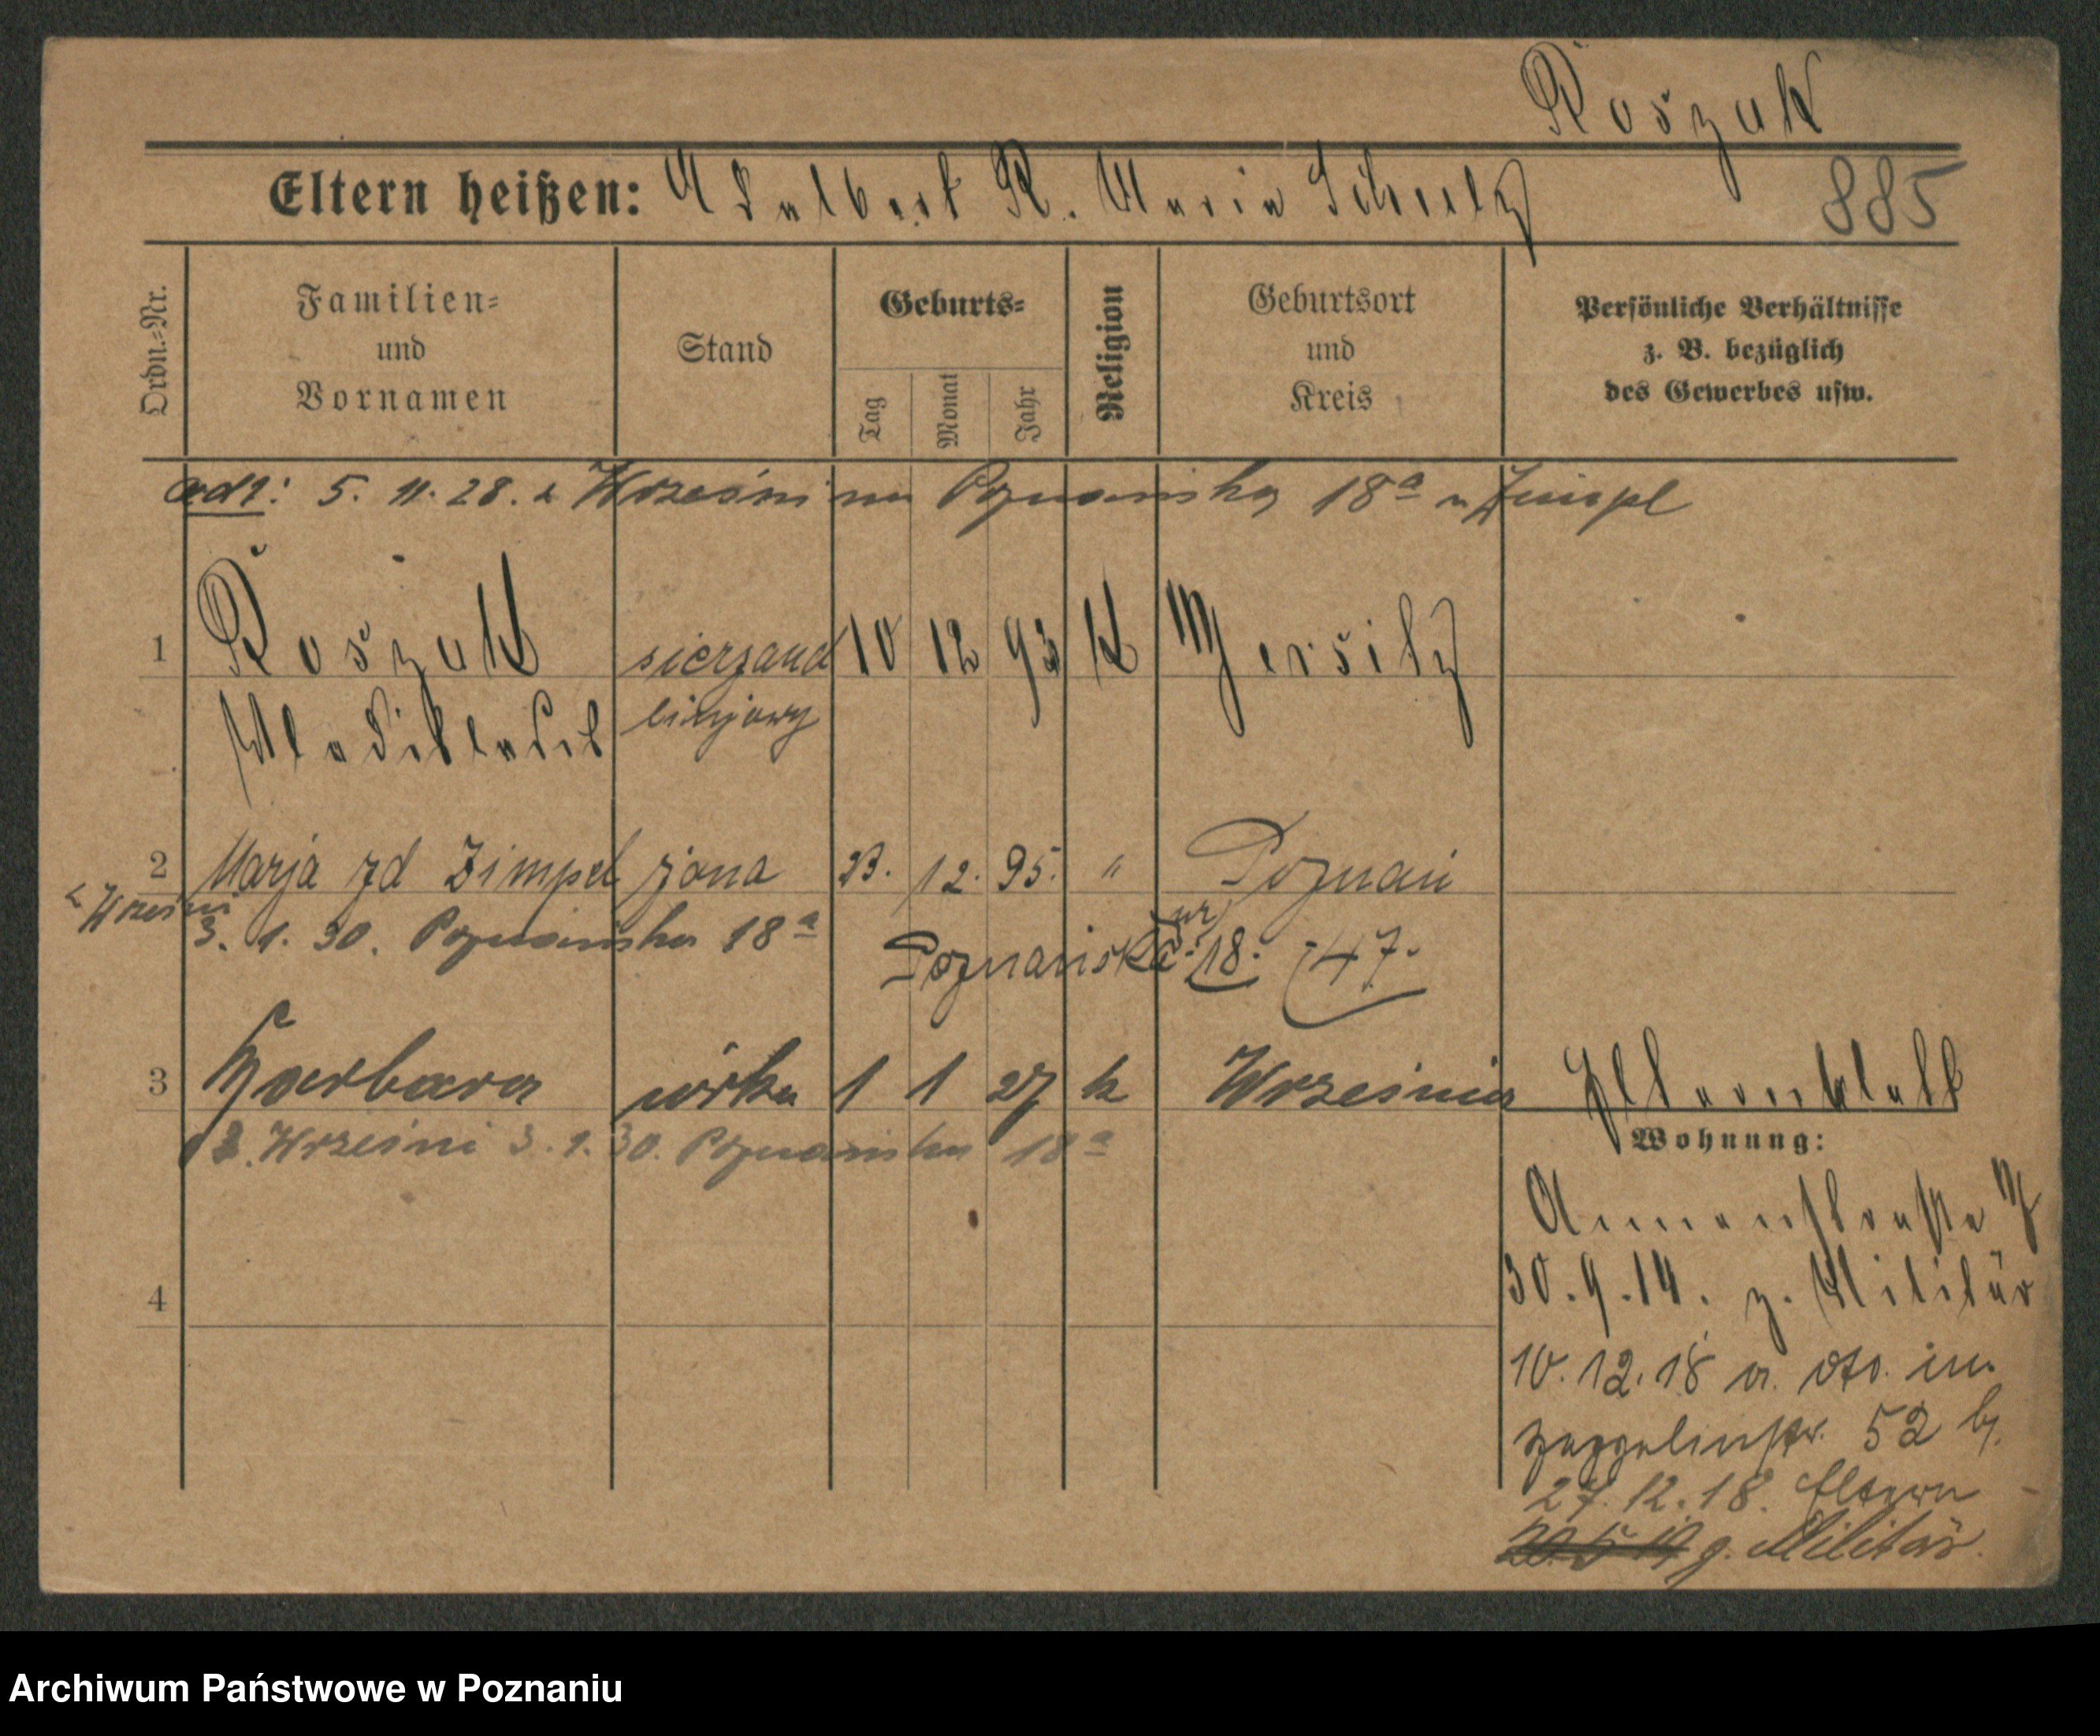 Roszak
Eltern heißen: Adalbert R. Maria Schulz
885
Ordn.-Nr.
Familien- und Vornamen
Stand
Geburts-
Tag
Monat
Jahr
Religion
Geburtsort und Kreis
Persönliche Verhältnisse z. B. bezüglich des Gewerbes usw.
ad 1: 5. 11. 28. z Wrześni na Poznańską 18a u Zimpl
1 Roszak sierzand 10 12 93 K Jersitz
Wladislaus linjowy
2 Marja zd Zimpel żona 23. 12. 95. " Poznań
z Wrześni
3. 1. 30. Poznańska 18a
Poznańska 18. 47.
3 Barbara córka 1 1 27 k Września
Elternblatt
z Wrześni 3. 1. 30. Poznańska 18a
Wohnung:
4
30. 9. 14. z. Militär
10. 12. 18 v.
Zeppelinstr. 52 b.
27. 12. 18. Eltern
z. Militär.
Archiwum Państwowe w Poznaniu